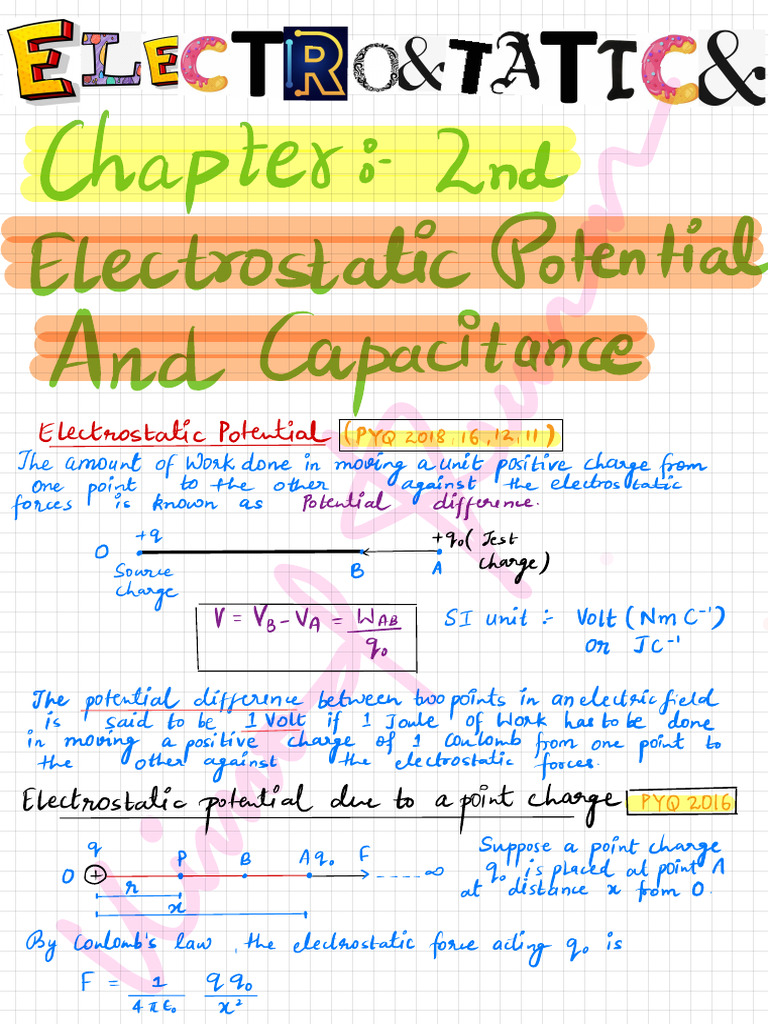 ELECTRO&TATIC&
Chapter:- 2nd
Electrostatic Potential
And Capacitance
Electrostatic Potential (PYQ 2018, 16, 12, 11)
The amount of work done in moving a unit positive charge from
one point to the other against the electrostatic
forces is known as Potential difference.
+q +q₀ (Test
O Source B A charge)
charge
V = V_B - V_A = W_AB / q₀ SI unit :- Volt (NmC⁻¹)
or JC⁻¹
The potential difference between two points in an electric field
is said to be 1 Volt if 1 Joule of work has to be done
in moving a positive charge of 1 Coulomb from one point to
the other against the electrostatic forces.
Electrostatic potential due to a point charge PYQ 2016
q P B A q₀ F
O + ∞
r
x
Suppose a point charge
q₀ is placed at point A
at distance x from O.
By Coulomb's law, the electrostatic force acting q₀ is
F = 1/4πε₀ qq₀/x²